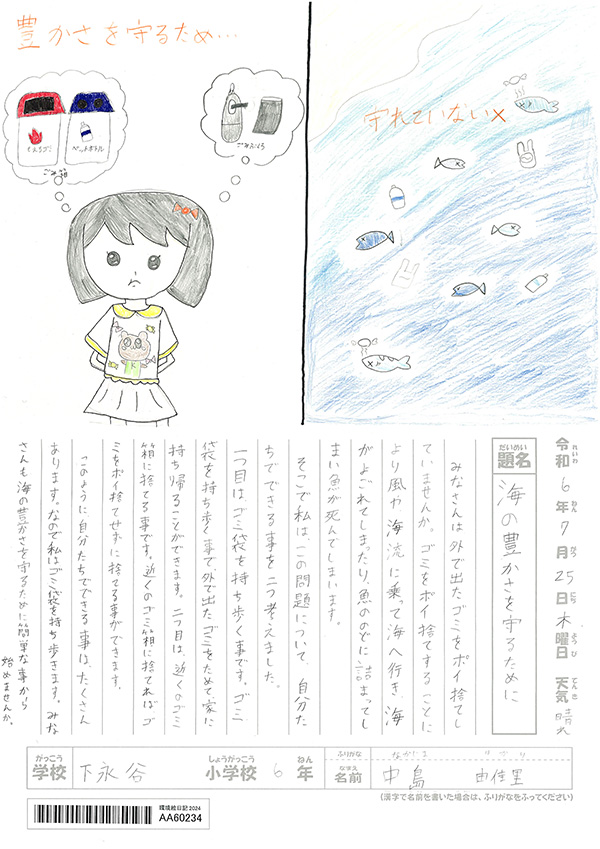 豊かさを守るため…
もえるゴミ
ペットボトル
ごみ箱
ごみぶくろ
守れていない×
令和6年7月25日木曜日 天気 晴れ
れいわ ねん がつ にち ようび てんき
だいめい
題名
海の豊かさを守るために
みなさんは外で出たゴミをポイ捨てし
ていませんか。ゴミをポイ捨てすることに
より風や海流に乗って海へ行き、海
がよごれてしまったり、魚ののどに詰まってし
まい魚が死んでしまいます。
そこで私は、この問題について、自分た
ちでできる事を二つ考えました。
一つ目は、ゴミ袋を持ち歩く事です。ゴミ
袋を持ち歩く事で、外で出たゴミをためて、家に
持ち帰ることができます。二つ目は、近くのゴミ
箱に捨てる事です。近くのゴミ箱に捨てればゴ
ミをポイ捨てせずに捨てる事ができます。
このように自分たちでできる事は、たくさん
あります。なので私はゴミ袋を持ち歩きます。みな
さんも海の豊かさを守るために簡単な事から
始めませんか。
がっこう
学校
下永谷
しょうがっこう
小学校
6
ねん
年
ふりがな
なかじま ゆかり
なまえ
名前
中島 由佳里
(漢字で名前を書いた場合は、ふりがなをふってください)
環境絵日記2024
AA60234